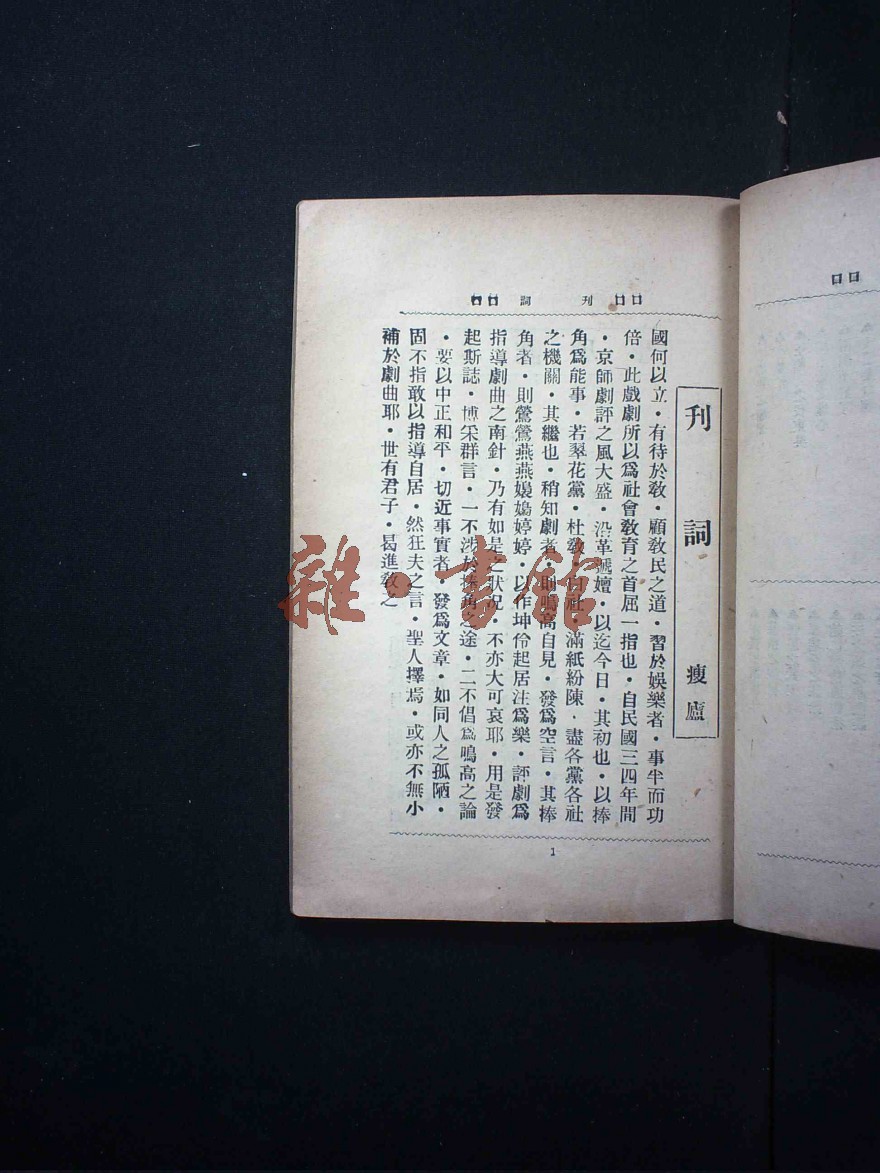 口口 刊 詞 口口
刊 詞 瘦廬
國何以立・有待於敎・顧敎民之道・習於娛樂者・事半而功
倍・此戲劇所以爲社會敎育之首屈一指也・自民國三四年間
・京師劇評之風大盛・沿革遞嬗・以迄今日・其初也・以捧
角爲能事・若翠花黨・杜敎白社・滿紙紛陳・盡各黨各社
之機關・其繼也・稍知劇者・則鳴高自見・發爲空言・其捧
角者・則鶯鶯燕燕嬝嬝婷婷・以作坤伶起居注爲樂・評劇爲
指導劇曲之南針・乃有如是之狀况・不亦大可哀耶・用是發
起斯誌・博采群言・一不涉於捧角之途・二不倡爲鳴高之論
・要以中正和平・切近事實者・發爲文章・如同人之孤陋・
固不指敢以指導自居・然狂夫之言・聖人擇焉・或亦不無小
補於劇曲耶・世有君子・曷進敎之
1
口口
雜・書館